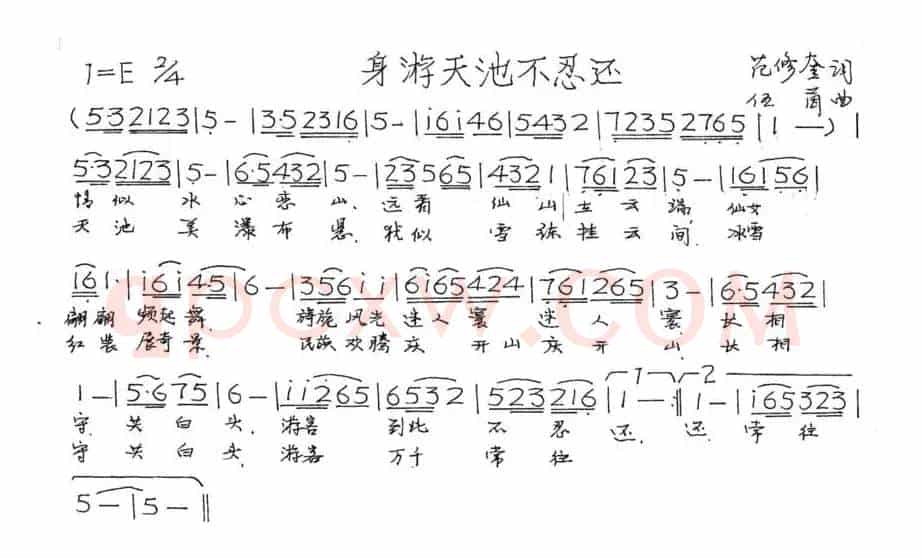 1=E 2/4 身游天池不忍还 范修奎词
伍 茵曲
(532123|5-|352316|5-|i6i46|5432|72352765|1-)|
5·32123|5-|6·5432|5-|23565|4321|76123|5-|16156|
情似水心恋山,远看仙山立云端,仙女
天池美瀑布悬,我似雪练挂云间,冰雪
161·|i6i45|6-|356ii|6i65424|761265|3-|6·5432|
翩翩频起舞,旖旎风光迷人寰迷人寰长相
红装展奇景,民族欢腾庆开山庆开山长相
1-|5·675|6-|ii265|6532|523216|1-:‖1-|i65323|
守共白头,游客到此不忍还,还,常往
守共白头,游客万千常往
5-|5-‖
qpcxw.COM